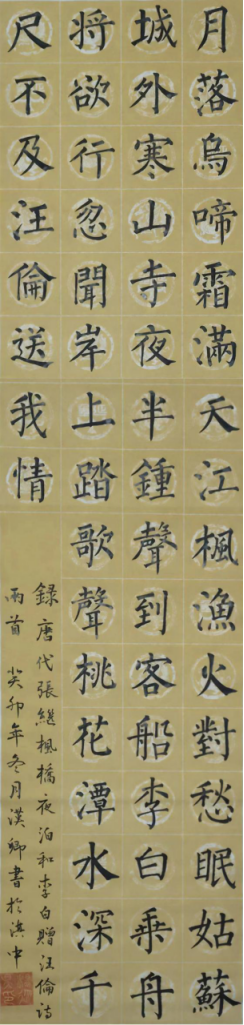 月落烏啼霜滿天江楓漁火對愁眠姑蘇
城外寒山寺夜半鍾聲到客船李白乘舟
將欲行忽聞岸上踏歌聲桃花潭水深千
尺不及汪倫送我情
錄唐代張繼楓橋夜泊和李白贈汪倫詩
兩首 癸卯年冬月漢卿書於漢中